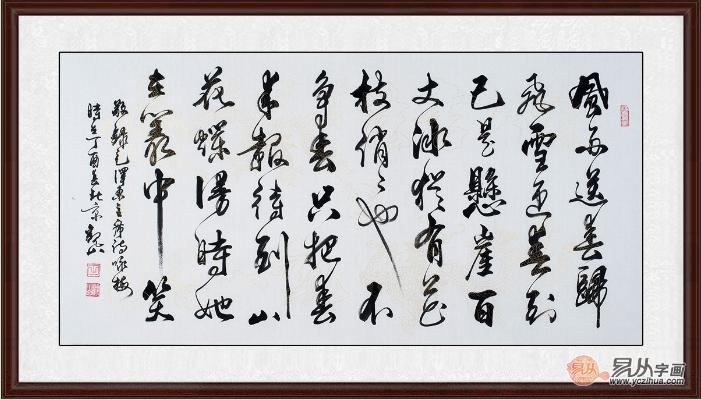 風雨送春歸
飛雪迎春到
已是懸崖百
丈冰猶有花
枝俏〻也不
争春只把春
来報待到山
花爛漫時她
在叢中笑
敬録毛澤東主席詩咏梅
時在丁酉春北京
易从字画
www.yczihua.com